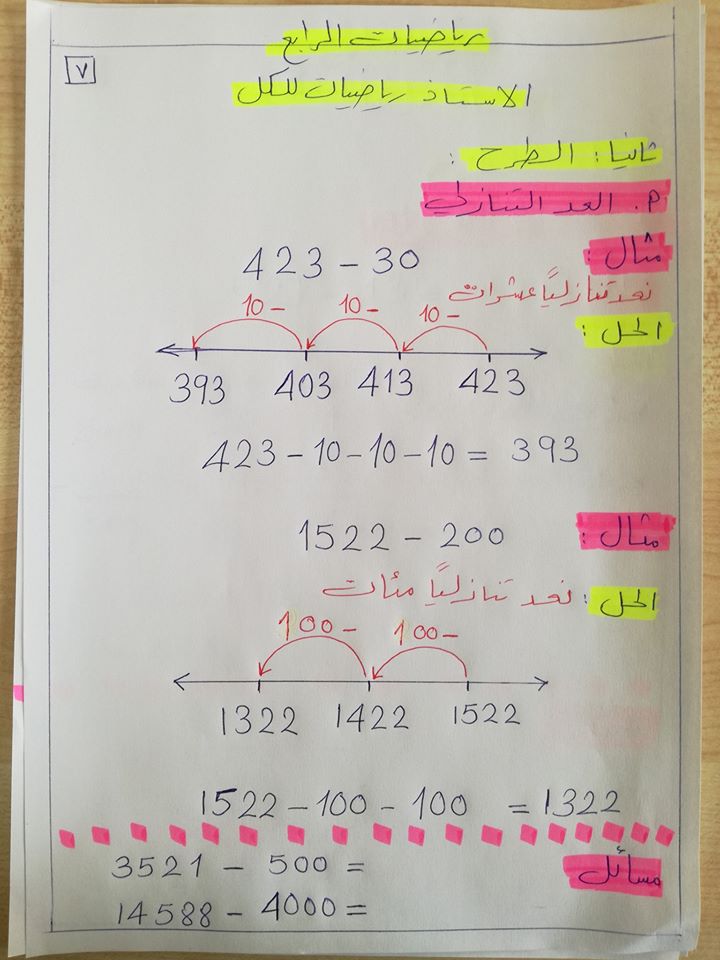 رياضيات الرابع
٧
الاستاذ رياضيات للكل
ثانيا: الطرح :
٩. العد التنازلي
مثال :
423 - 30
نعد تنازلياً عشرات
الحل :
10 - 10 - 10 -
393 403 413 423
423 - 10 - 10 - 10 = 393
مثال :
1522 - 200
الحل : نعد تنازلياً مئات
100 - 100 -
1322 1422 1522
1522 - 100 - 100 = 1322
مسائل
3521 - 500 =
14588 - 4000 =